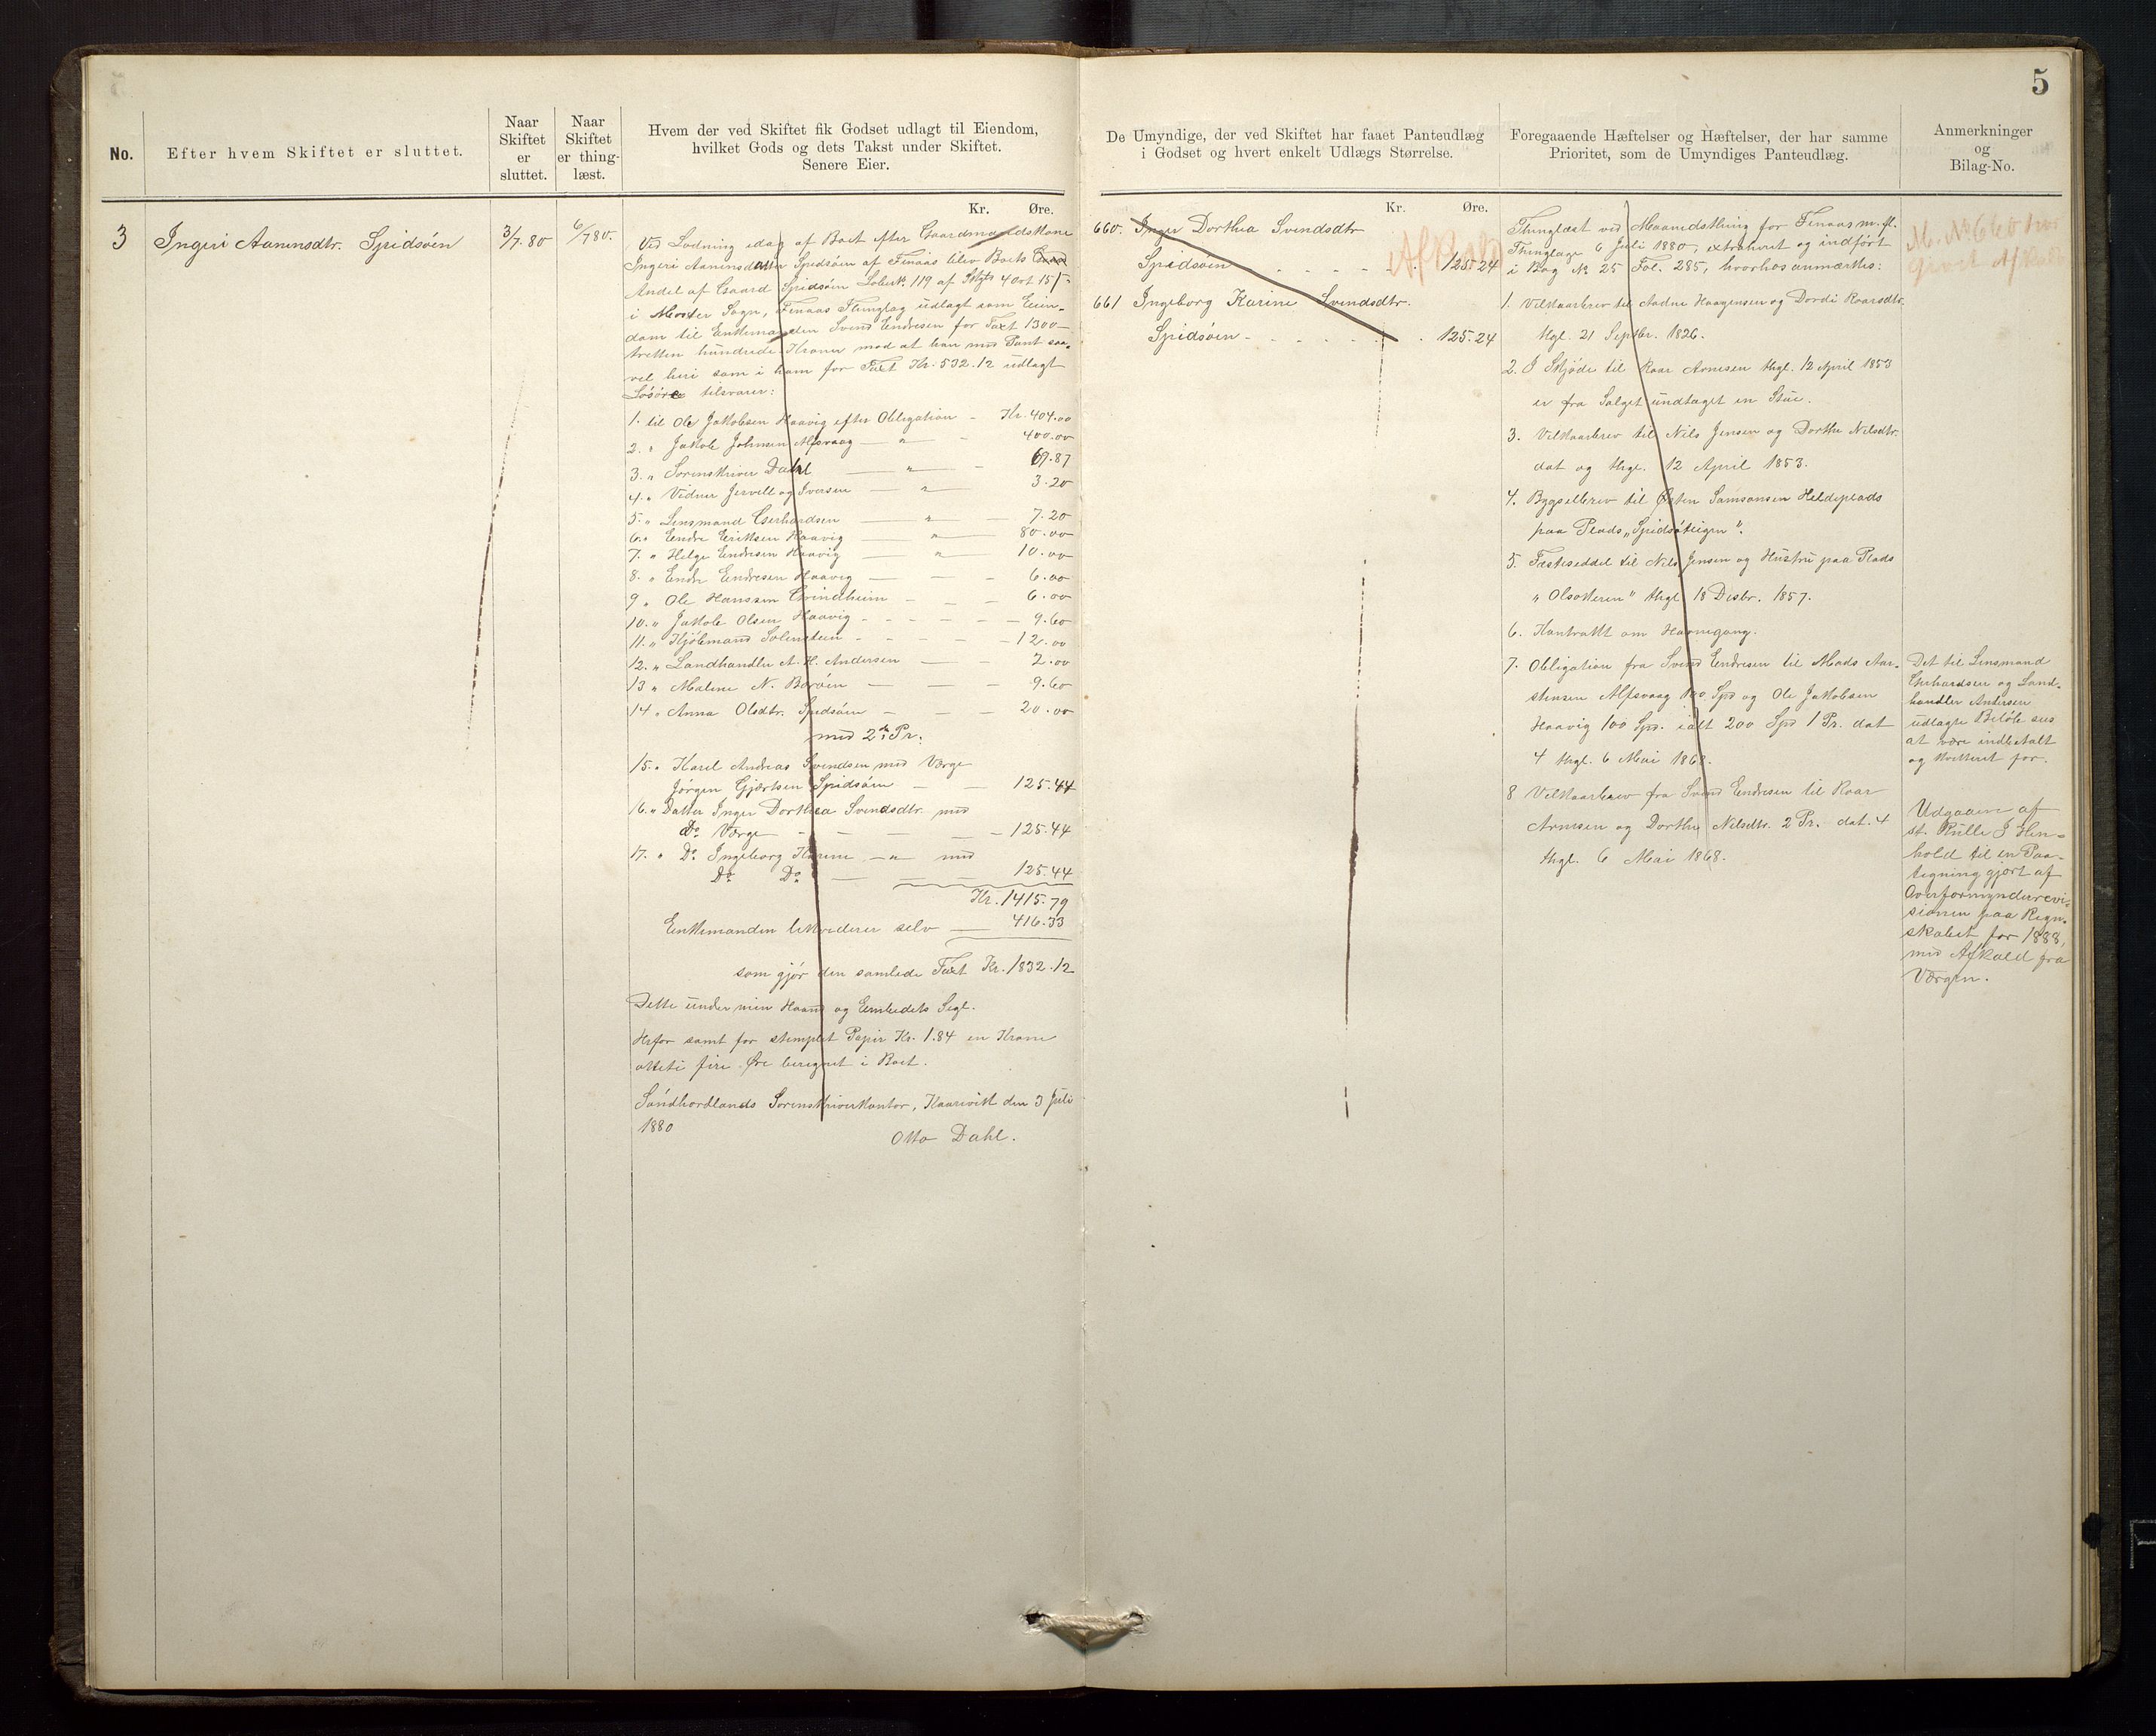 5
No.
Efter hvem Skiftet er sluttet.
Naar
Skiftet
er
sluttet.
Naar
Skiftet
er thing-
læst.
Hvem der ved Skiftet fik Godset udlagt til Eiendom,
hvilket Gods og dets Takst under Skiftet.
Senere Eier.
De Umyndige, der ved Skiftet har faaet Panteudlæg
i Godset og hvert enkelt Udlægs Størrelse.
Foregaaende Hæftelser og Hæftelser, der har samme
Prioritet, som de Umyndiges Panteudlæg.
Anmerkninger
og
Bilag-No.
3 Ingeri Aanensdtr. Spidsöen 3/7.80 6/7 80.
Kr. Øre.
Ved Lodning idag af Boet efter Gaardmandskone
Ingeri Aanensdatter Spidsöen af Finaas blev Boets
Andel af Gaard Spidsöen Löbe No. 119 af 4 ort 15
i Moster Sogn, Finaas Thinglag udlagt som Eien-
dom til Enkemanden Svend Endresen for Taxt 1300
tretten hundrede Kroner mod at han med Pant saa-
vel heri som i ham for Taxt Kr. 532.12 udlagt
Lösöre tilsvarer:
1. til Ole Jakobsen Haavig efter Obligation - Kr. 404.00
2. " Jakob Johnsen Alfsvaag — " - 400.00
3. " Sorenskriver Dahl — " — - 69.87
4. " Vidner Jervell og Iversen — " — 3.20
5. " Lensmand Gerhardsen — " — 7.20
6. " Endre Eriksen Haavig — " — 80.00
7. " Helge Endresen Haavig — " — 10.00
8. " Endre Endresen Haavig — — - 6.00
9. " Ole Hanssen Grindheim - - - 6.00
10. " Jakob Olsen Haavig - - - - - 9.60
11. " Kjöbmand Solenstein - - - - 12.00
12. " Landhandler A. H. Andersen — — 2.00
13. " Malene N. Boröen — — - 9.60
14. " Anna Olsdtr. Spidsöen - — - 20.00
med 2den Pr.
15. " Karl Andreas Svendsen med Værge
Jörgen Gjertsen Spidsöen - — 125.44
16. " Datter Inger Dorthea Svendsdtr. med
Do. Værge - — — — - 125.44
17. " Do. Ingeborg Karine — " — med
Do. Do. — — — 125.44
Kr. 1415.79
Enkemanden beholder selv — 416.33
som gjör den samlede Taxt Kr. 1832.12
Dette under min Haand og Embedets Segl.
Herfor samt for stemplet Papir Kr. 1.84 en Krone
otteti fire Öre beregnet i Boet.
Söndhordlands Sorenskriverkontor, Kaarevik den 3 Juli
1880
Otto Dahl.
Kr. Øre.
660. Inger Dorthea Svendsdtr.
Spidsöen - - - - - 125.24
Afkald
661 Ingeborg Karine Svendsdtr.
Spidsöen - - - - - - 125.24
Thinglæst ved Maanedsthing for Finaas m. fl.
Thinglage 6 Juli 1880, extraheret og indfört
i Bog No. 25 Fol. 285, hvorhos anmærkes:
1. Vilkaarbrev til Aadne Haagensen og Dordi Roarsdtr.
thgl. 21 Septbr. 1826.
2. I Skjöde til Roar Arnesen thgl. 12 April 1853
er fra Salget undtaget en Stue.
3. Vilkaarbrev til Nils Jensen og Dorthe Nilsdtr.
dat og thgl. 12 April 1853.
4. Bygselbrev til Östen Samsonsen Heldeplads
paa Plads „Spidsöteigen".
5. Fæsteseddel til Nils Jensen og Hustru paa Plads
" " thgl. 18 Decbr. 1857.
6. Kontrakt om Havnegang.
7. Obligation fra Svend Endresen til Mads Aar-
stensen Alfsvaag 100 Spd og Ole Jakobsen
Haavig 100 Spd. ialt 200 Spd 1 Pr. dat
4 thgl. 6 Mai 1868.
8 Vilkaarbrev fra Svend Endresen til Roar
Arnesen og Dorthe Nilsdtr. 2 Pr. dat. 4
thgl. 6 Mai 1868.
M. No. 660 har
givet Afkald
Det til Lensmand
Gerhardsen og Land-
handler Andersen
udlagte Belöb sees
at være indbetalt
og kvitteret for.
Udgaaen af
st. Rulle I Hen-
hold til en Paa-
tegning gjort af
Overformynderrevi-
sionen paa Regn-
skabet for 1888,
med Afkald fra
Værgen.